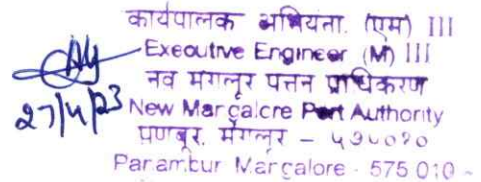 कार्यपालक अभियंता. (एम) III
Executive Engineer (M) III
नव मंगलूर पत्तन प्राधिकरण
27/4/23
New Mangalore Port Authority
पणंबूर, मंगलूर – ५७५०१०
Panambur Mangalore - 575 010 -